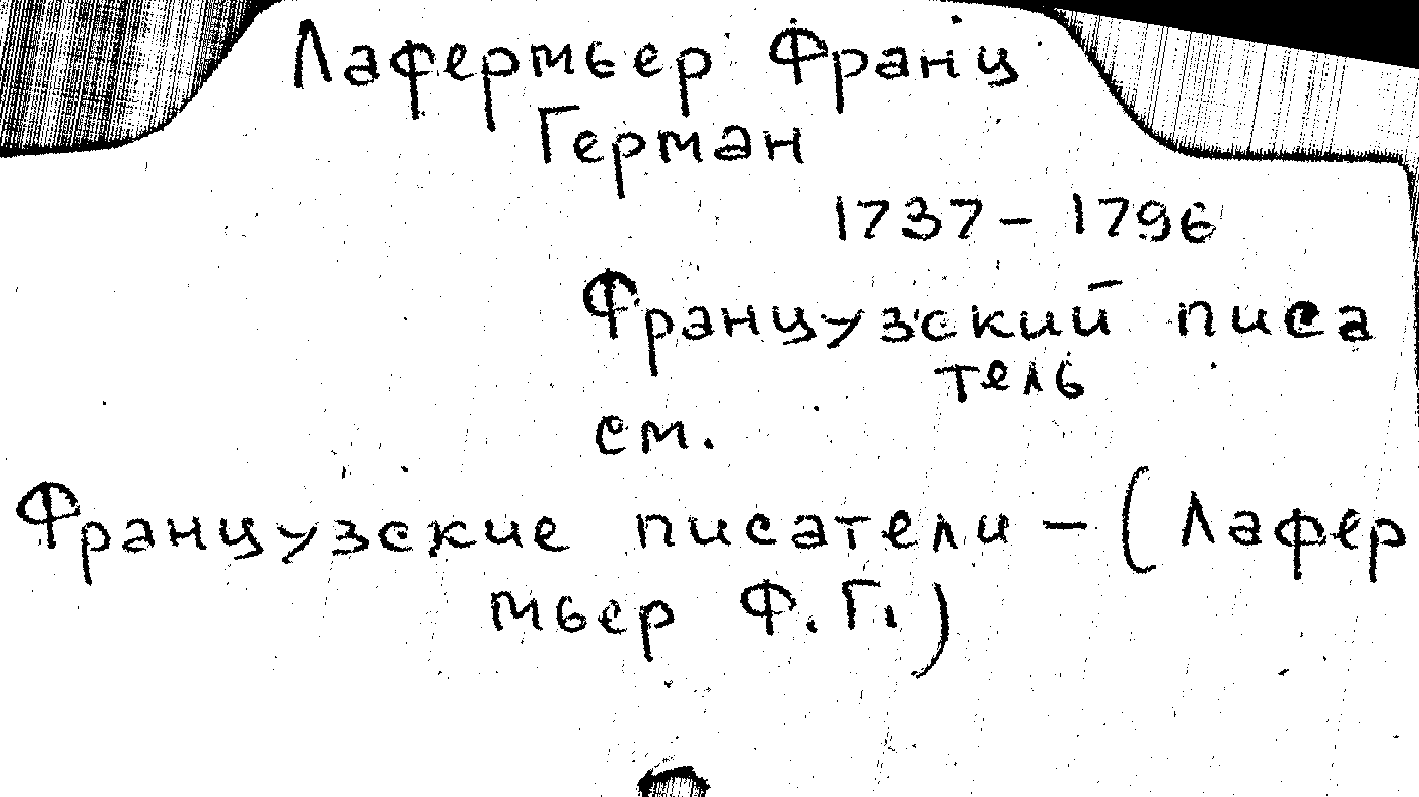 Лафермьер Франц
Герман
1737 – 1796
Французский писа
тель
см.
Французские писатели – (Лафер
мьер Ф. Г.)